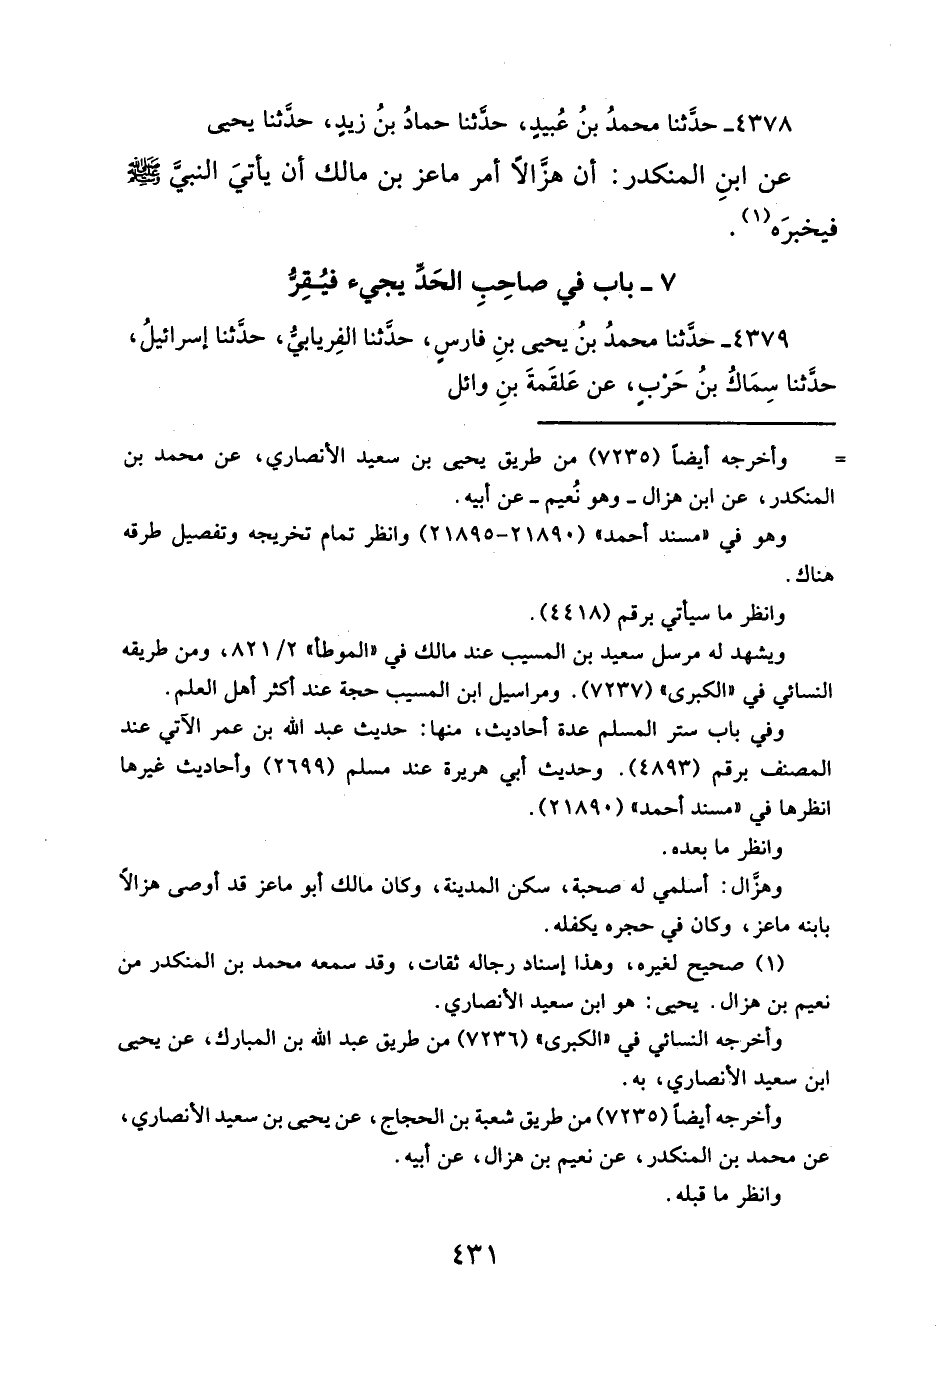 ٤٣٧٨ـ حدَّثنا محمدُ بنُ عُبيدٍ، حدَّثنا حمادُ بنُ زيدٍ، حدَّثنا يحيى
عن ابنِ المنكدر: أن هزَّالاً أمر ماعز بن مالك أن يأتيَ النبيَّ ﷺ
فيخبرَه(١).
٧ ـ باب في صاحِبِ الحَدِّ يجيء فيُقِرُّ
٤٣٧٩ـ حدَّثنا محمدُ بنُ يحيى بنِ فارسٍ، حدَّثنا الفِريابيُّ، حدَّثنا إسرائيلُ،
حدَّثنا سِمَاكُ بنُ حَرْبٍ، عن عَلقَمةَ بنِ وائل
= وأخرجه أيضاً (٧٢٣٥) من طريق يحيى بن سعيد الأنصاري، عن محمد بن
المنكدر، عن ابن هزال ـ وهو نُعيم ـ عن أبيه.
وهو في «مسند أحمد» (٢١٨٩٠-٢١٨٩٥) وانظر تمام تخريجه وتفصيل طرقه
هناك.
وانظر ما سيأتي برقم (٤٤١٨).
ويشهد له مرسل سعيد بن المسيب عند مالك في «الموطأ» ٨٢١/٢، ومن طريقه
النسائي في «الكبرى» (٧٢٣٧). ومراسيل ابن المسيب حجة عند أكثر أهل العلم.
وفي باب ستر المسلم عدة أحاديث، منها: حديث عبد الله بن عمر الآتي عند
المصنف برقم (٤٨٩٣). وحديث أبي هريرة عند مسلم (٢٦٩٩) وأحاديث غيرها
انظرها في «مسند أحمد» (٢١٨٩٠).
وانظر ما بعده.
وهزَّال: أسلمي له صحبة، سكن المدينة، وكان مالك أبو ماعز قد أوصى هزالاً
بابنه ماعز، وكان في حجره يكفله.
(١) صحيح لغيره، وهذا إسناد رجاله ثقات، وقد سمعه محمد بن المنكدر من
نعيم بن هزال. يحيى: هو ابن سعيد الأنصاري.
وأخرجه النسائي في «الكبرى» (٧٢٣٦) من طريق عبد الله بن المبارك، عن يحيى
ابن سعيد الأنصاري، به.
وأخرجه أيضاً (٧٢٣٥) من طريق شعبة بن الحجاج، عن يحيى بن سعيد الأنصاري،
عن محمد بن المنكدر، عن نعيم بن هزال، عن أبيه.
وانظر ما قبله.
٤٣١